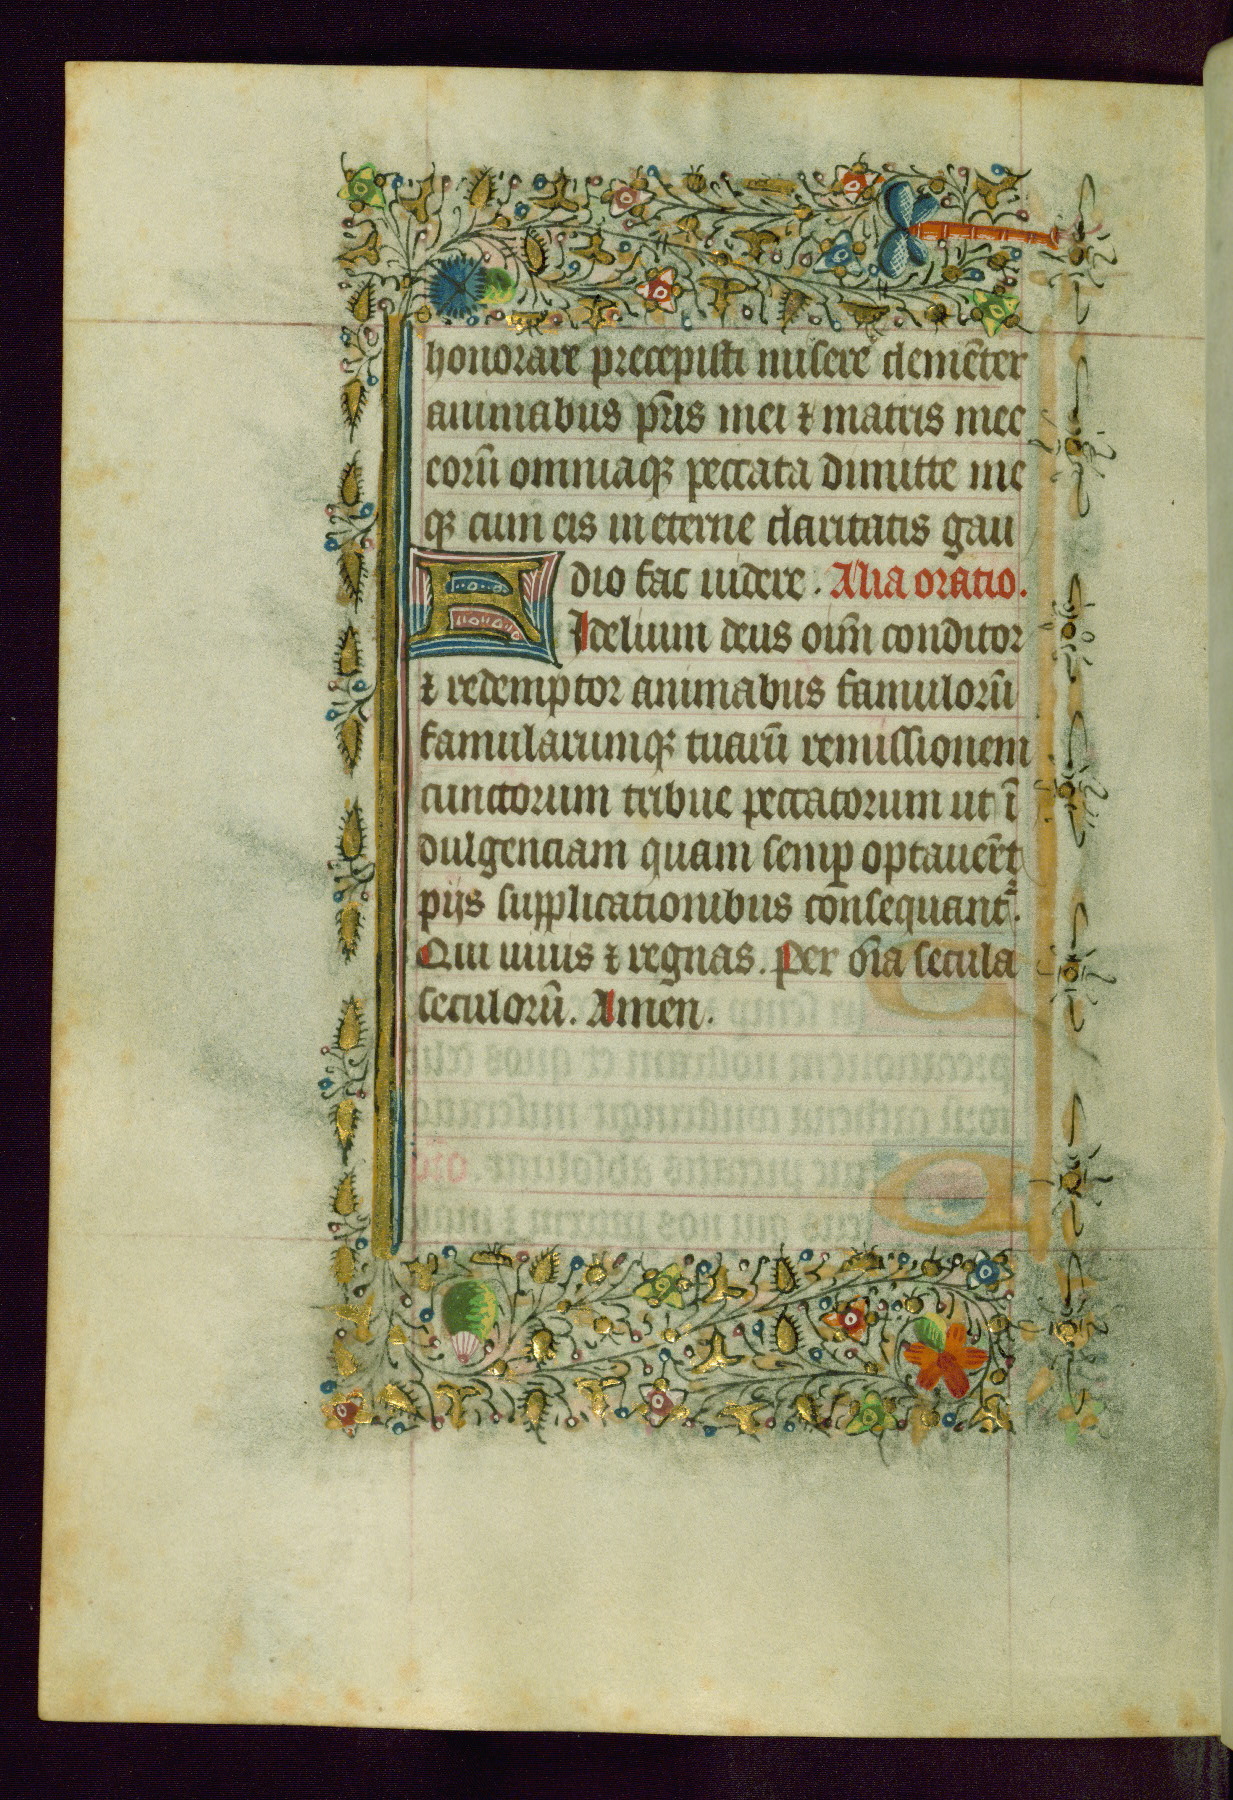 honorare precepisti misere clemēter
animabus pr̄is mei ⁊ matris mee
eorū omniaqꝫ peccata dimitte me
qꝫ cum eis in eterne claritatis gau
dio fac uidere. Alia oratio.
Fidelium deus oīm conditor
⁊ redemptor animabus famulorū
famularumqꝫ tuarū remissionem
cunctorum tribue peccatorum ut ī
dulgenciam quam semꝑ optauer̄t
pijs supplicationibus consequant᷑.
Qui uiuis ⁊ regnas. Per oīa secula
seculorū. Amen.